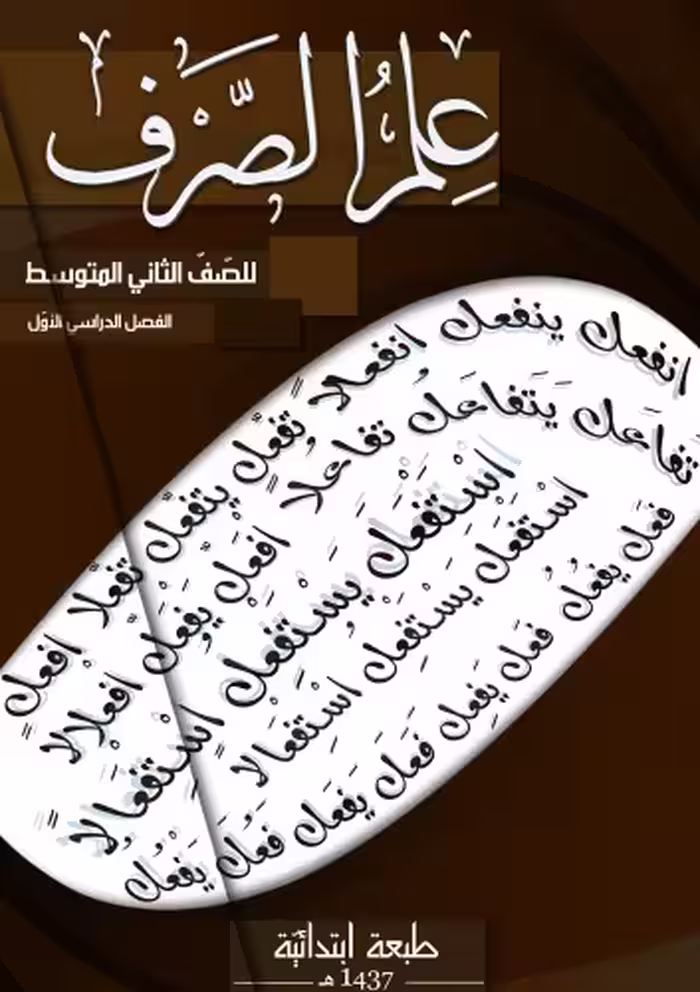 عِلمُ الصَّرْف
للصّفّ الثاني المتوسط
الفصل الدراسي الأوّل
انفعل ينفعل انفعالا
تَفَاعَلَ يَتَفَاعَلُ تَفَاعُلًا
تَفَعَّلَ يَتَفَعَّلُ تَفَعُّلًا
افْعَلَّ يَفْعَلُّ افْعِلَالًا
اسْتَفْعَلَ يَسْتَفْعِلُ اسْتِفْعَالًا
استفعل يستفعل استفعالا
فَعُلَ يَفْعُلُ
فَعَلَ يَفْعِلُ فَعَلَ يَفْعَلُ فَعَلَ يَفْعُلُ
طبعة ابتدائيّة
1437 هـ